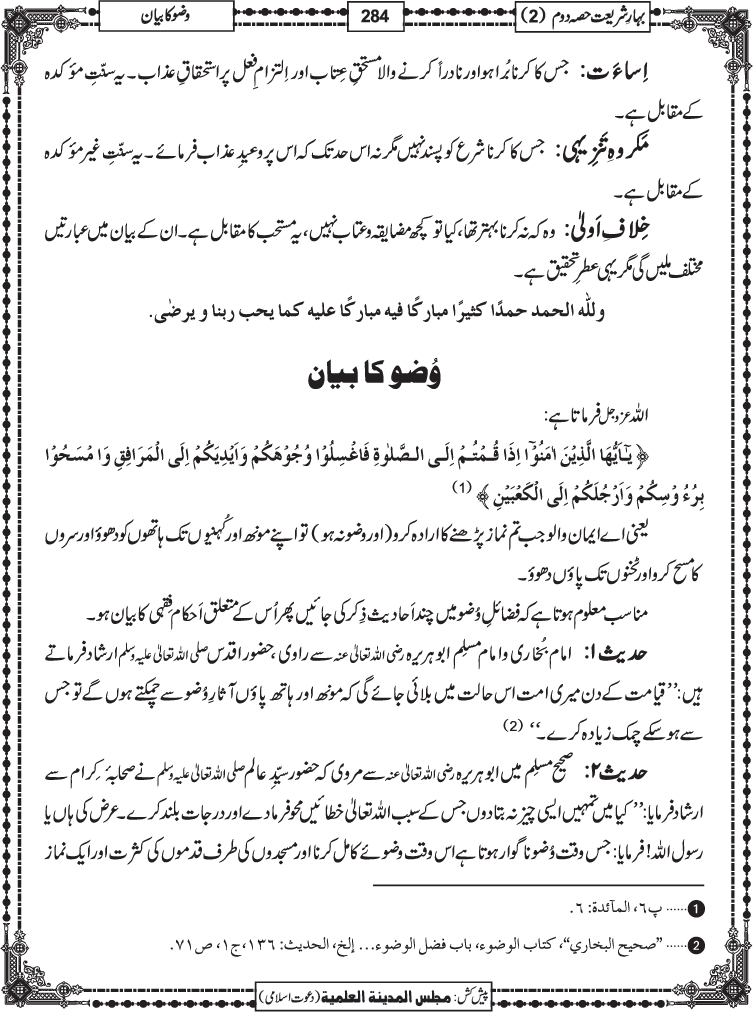 بہارِ شریعت حصہ دوم (2)
284
وضو کا بیان
اِساءَت: جس کا کرنا بُرا ہو اور نادراً کرنے والا مستحقِ عتاب اور اِلتزامِ فعل پر استحقاقِ عذاب۔ یہ سنّتِ مؤکدہ
کے مقابل ہے۔
مکروہِ تَنزِیہی: جس کا کرنا شرع کو پسند نہیں مگر نہ اس حد تک کہ اس پر وعیدِ عذاب فرمائے۔ یہ سنّتِ غیر مؤکدہ
کے مقابل ہے۔
خِلافِ اَولیٰ: وہ کہ نہ کرنا بہتر تھا، کیا تو کچھ مضایقہ و عتاب نہیں، یہ مستحب کا مقابل ہے۔ ان کے بیان میں عبارتیں
مختلف ملیں گی مگر یہی عطرِ تحقیق ہے۔
وللّٰه الحمد حمدًا كثيرًا مباركًا فيه مباركًا عليه كما يحب ربنا و يرضٰى.
وُضو کا بیان
اللہ عزوجل فرماتا ہے:
﴿ یٰۤاَیُّهَا الَّذِیْنَ اٰمَنُوْۤا اِذَا قُمْتُمْ اِلَی الصَّلٰوةِ فَاغْسِلُوْا وُجُوْهَكُمْ وَاَیْدِیَكُمْ اِلَی الْمَرَافِقِ وَامْسَحُوْا
بِرُءُوْسِكُمْ وَاَرْجُلَكُمْ اِلَی الْكَعْبَیْنِ ﴾ (1)
یعنی اے ایمان والو جب تم نماز پڑھنے کا ارادہ کرو (اور وضو نہ ہو) تو اپنے مونھ اور کُہنیوں تک ہاتھوں کو دھوؤ اور سروں
کا مسح کرو اور ٹخنوں تک پاؤں دھوؤ۔
مناسب معلوم ہوتا ہے کہ فضائلِ وُضو میں چند اَحادیث ذِکر کی جائیں پھر اُس کے متعلق اَحکامِ فقہی کا بیان ہو۔
حدیث ۱: امام بُخاری و امام مسلِم ابو ہریرہ رضی اللہ تعالیٰ عنہ سے راوی، حضور اقدس صلی اللہ تعالیٰ علیہ وسلم ارشاد فرماتے
ہیں: ’’قیامت کے دن میری امت اس حالت میں بلائی جائے گی کہ مونھ اور ہاتھ پاؤں آثارِ وُضو سے چمکتے ہوں گے تو جس
سے ہو سکے چمک زیادہ کرے۔‘‘ (2)
حدیث ۲: صحیح مسلِم میں ابو ہریرہ رضی اللہ تعالیٰ عنہ سے مروی کہ حضور سیّدِ عالم صلی اللہ تعالیٰ علیہ وسلم نے صحابۂ کِرام سے
ارشاد فرمایا: ’’کیا میں تمہیں ایسی چیز نہ بتادوں جس کے سبب اللہ تعالیٰ خطائیں محو فرما دے اور درجات بلند کرے۔ عرض کی ہاں یا
رسول اللہ! فرمایا: جس وقت وُضو ناگوار ہوتا ہے اس وقت وضوئے کامل کرنا اور مسجدوں کی طرف قدموں کی کثرت اور ایک نماز
1 ...... پ٦، المآئدة: ٦.
2 ...... ”صحيح البخاري“، كتاب الوضوء، باب فضل الوضوء... إلخ، الحديث: ١٣٦، ج١، ص٧١.
پیش کش: مجلس المدينة العلمية (دعوتِ اسلامی)